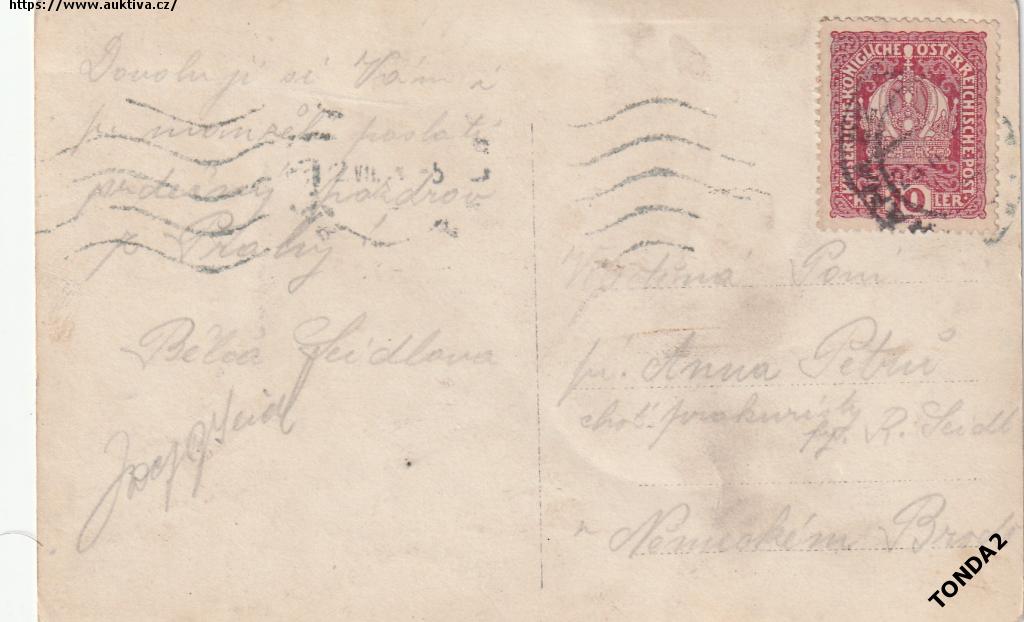 https://www.auktiva.cz/
Dovoluji si Vám i
p. manželi poslati
srdečný pozdrav
z Prahy!
Seidlova
Josef Seidl
KAISERLICHE KÖNIGLICHE ÖSTERREICHISCHE POST
10
VII
Paní
pí. Anna Petrů
choť prokuristy
fy. R. Seidl
v Německém Brodě
TONDA2